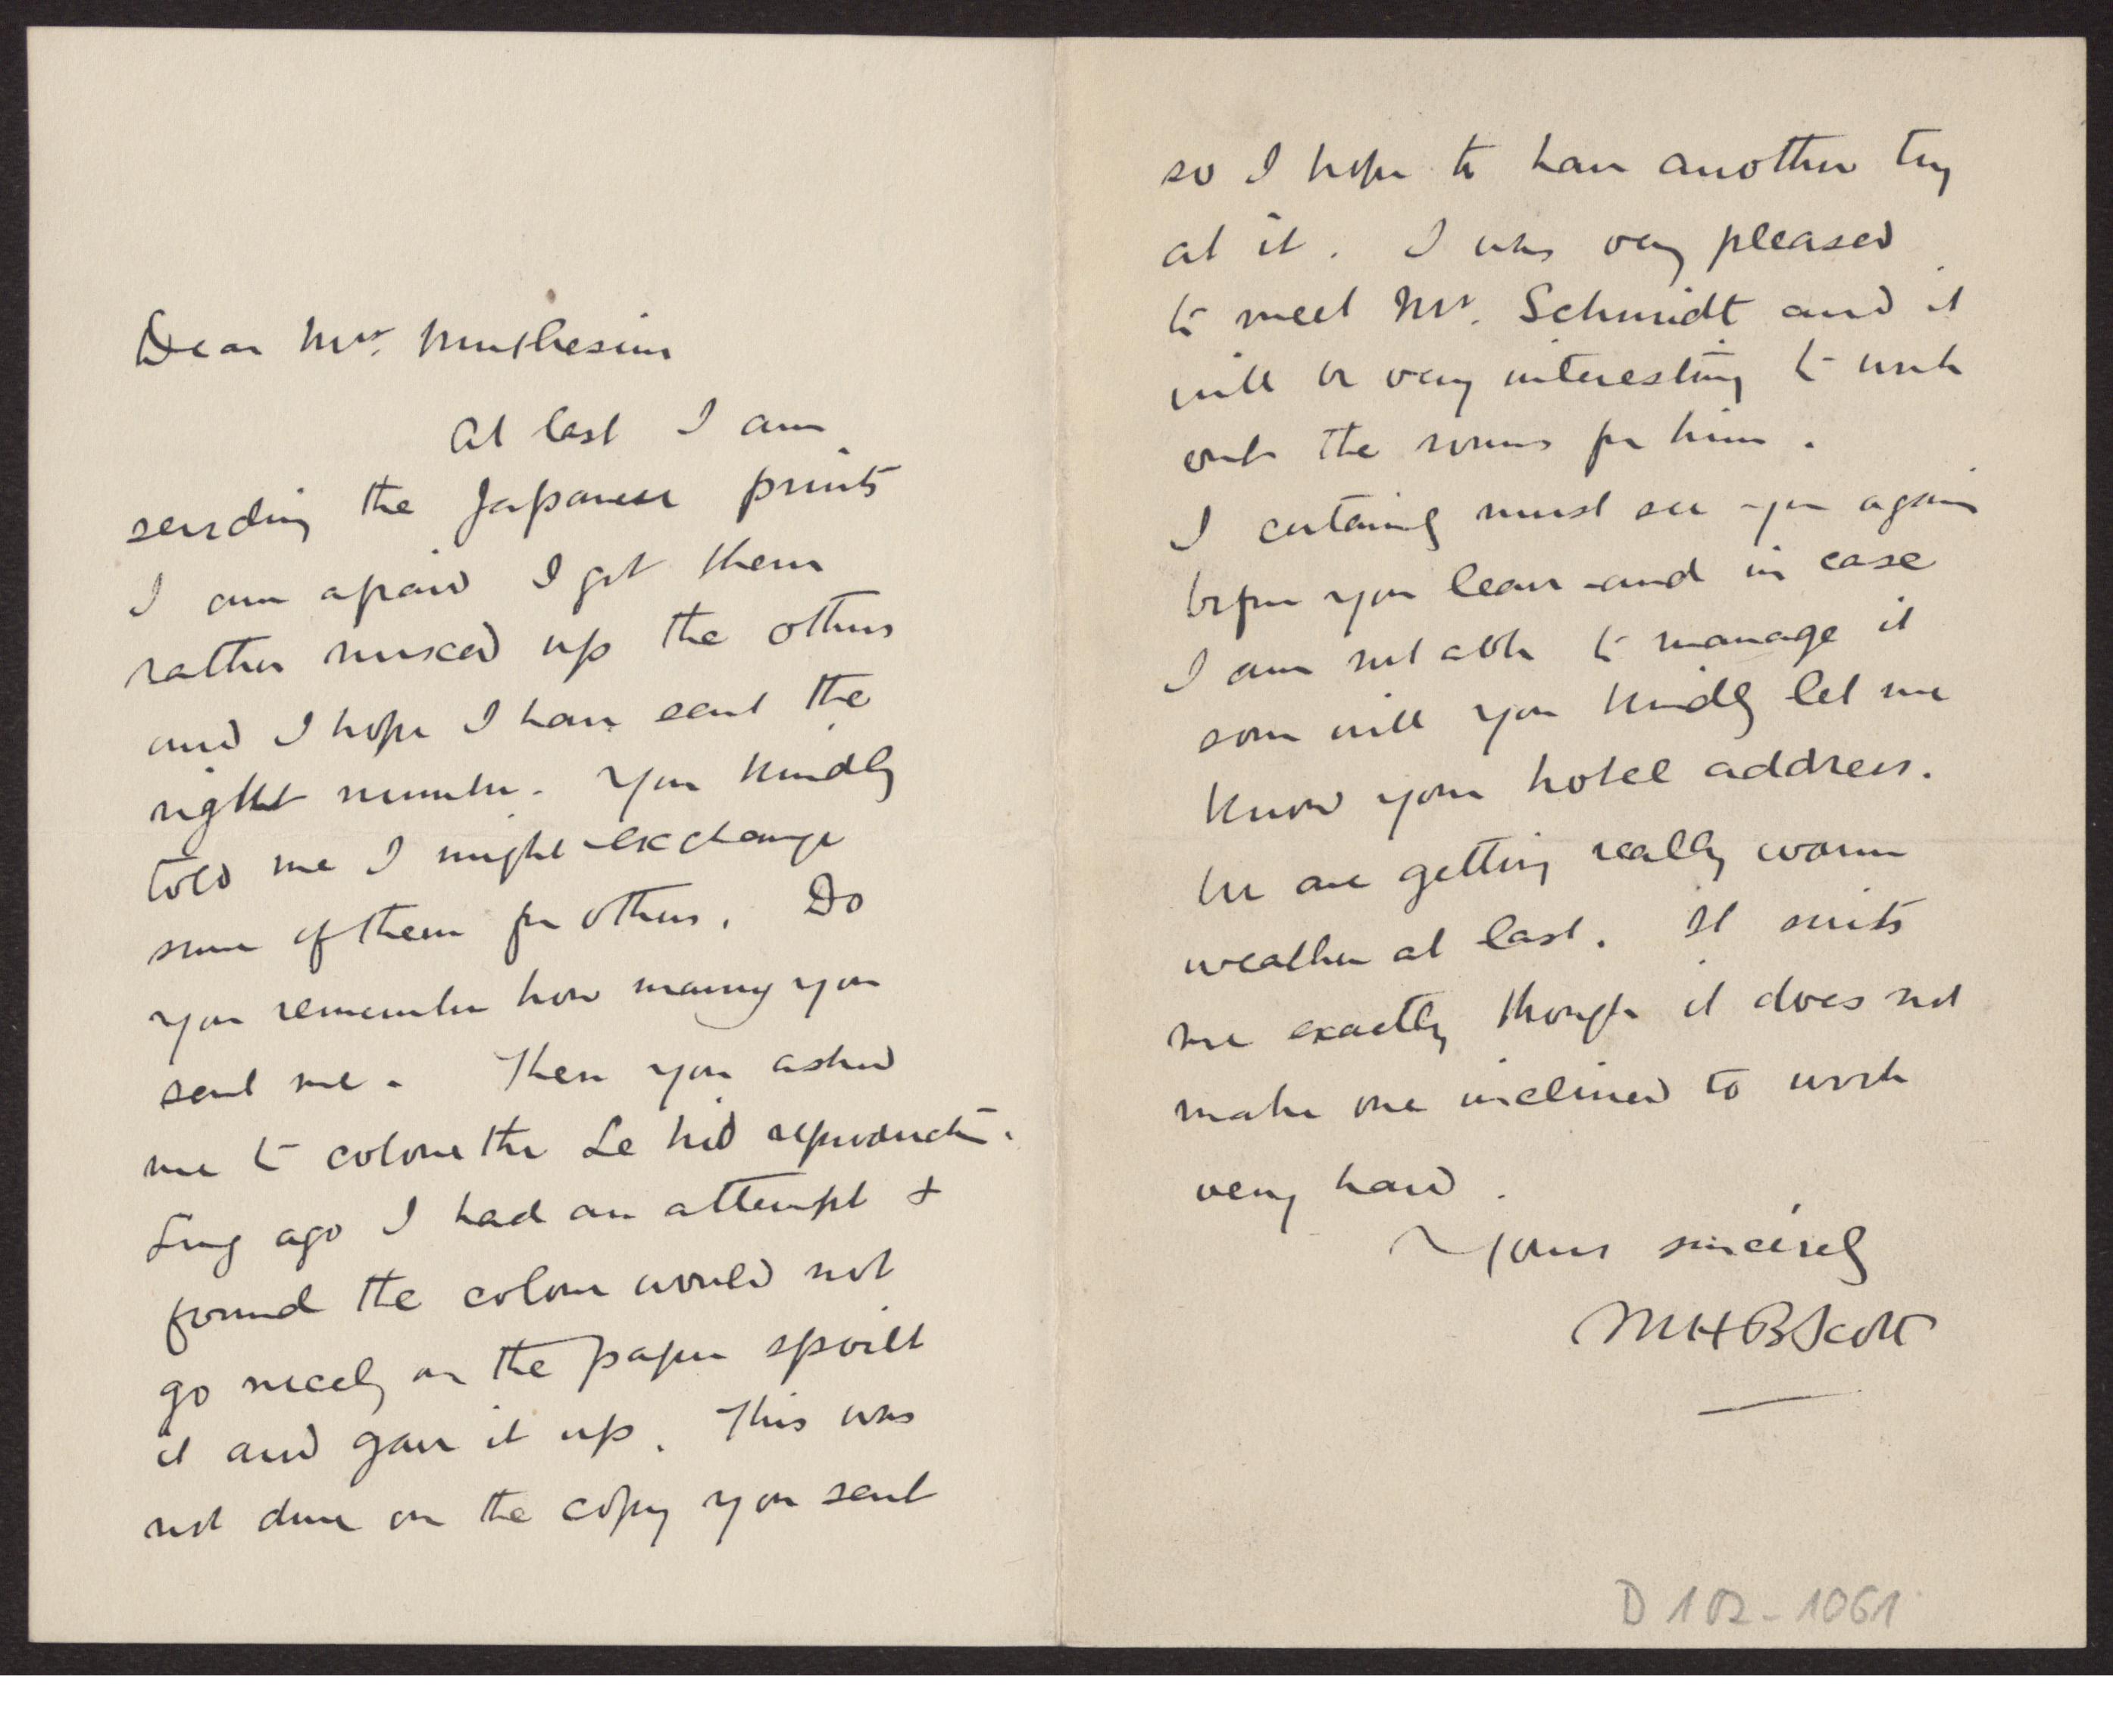 Dear Mrs. Muthesius
At last I am
sending the Japanese prints
I am afraid I got them
rather mixed up the others
and I hope I have sent the
right number. You kindly
told me I might exchange
some of them for others. Do
you remember how many you
sent me. Then you asked
me to colour the Le Nid reproduction.
Long ago I had an attempt &
found the colour would not
go nicely on the paper spoilt
it and gave it up. This was
not done on the copy you sent
so I hope to have another try
at it. I was very pleased
to meet Mr. Schmidt and it
will be very interesting to work
out the rooms for him.
I certainly must see you again
before you leave and in case
I am not able to manage it
soon will you kindly let me
know your hotel address.
We are getting really warm
weather at last. It suits
me exactly though it does not
make one inclined to work
very hard.
Yours sincerely
MHBScott
D 102-1061